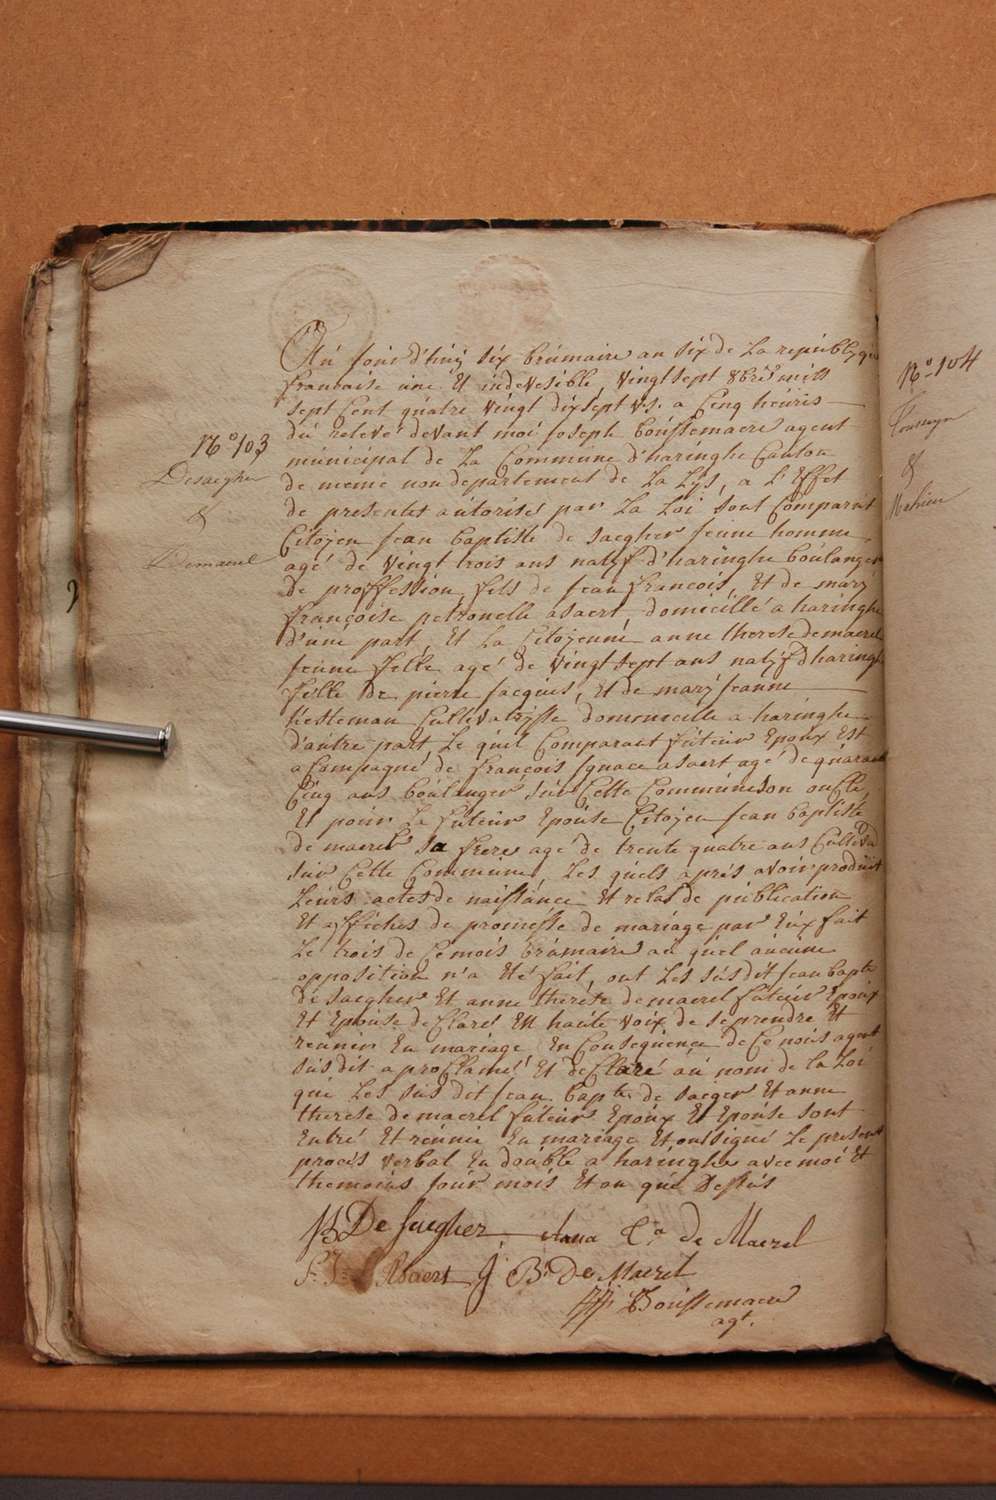 N.º 103
Desaegher
&
Demaerel
Au jour d'huij six brumaire an six de La republiqu
francaise une Et indevesible, vingt sept 8bre mill
sept Cent quatre vingt dix sept v.s. a Cenq heures
du relevé devant moi joseph boussemaere agent
municipal de La Commune d'haringhe Canton
de meme nom departement de La Lys, a L'Effet
de presentes autorises par La Loi sont Comparut
Citoijen jean baptiste de saegher jeune homme
agé de vingt trois ans natijf d'haringhe boulanger
de proffession, fils de jean francois, Et de marij
francoise petronelle asaert domecillé a haringhe
d'une part, Et La Citoijenne anne therese demaerel
jeune fille agé de vingt sept ans natijf d'haringh
fille de pierre jacques, et de marij jeanne
hesteman Cultivatrysse domenecille a haringhe
d'autre part Le quel Comparaet futeur Epoux Est
aCompagné de francois ignace asaert agé de quarant
Cinq ans boulanger sur Cette Commune son oncle,
Et pour La futeur Epouse Citoijen jean baptiste
de maerel sa frere agé de trente quatre ans Cultiva
sur Cette Commune, Les quels aprés avoir produit
Leurs actes de naissance Et relas de publication
Et affiches de promesse de mariage par Eux fait
Le trois de Ce mois brumaire au quel aucune
opposition n'a Eté fait, ont Les susdit jean bapte
de saegher Et anne therese demaerel futeur Epoux
Et Epouse deClaré En haute voix de se prendre Et
reunir En mariage En Consequence de Ce nous agent
susdit a proClamé Et deClaré au nom de la Loi
que Les susdit jean bapte de saeger Et anne
therese de maerel futeur Epoux Et Epouse sont
Entré Et reunie En mariage Et onts signé Le present
procés verbal En double a haringhe avec moi Et
themoins jour mois Et an que Dessus
JB De Saegher Anna Ta de Maerel
F: J: Asaert J Be De Maerel
JJ: Boussemaere
agt.
N.º 104
&
Mahieu